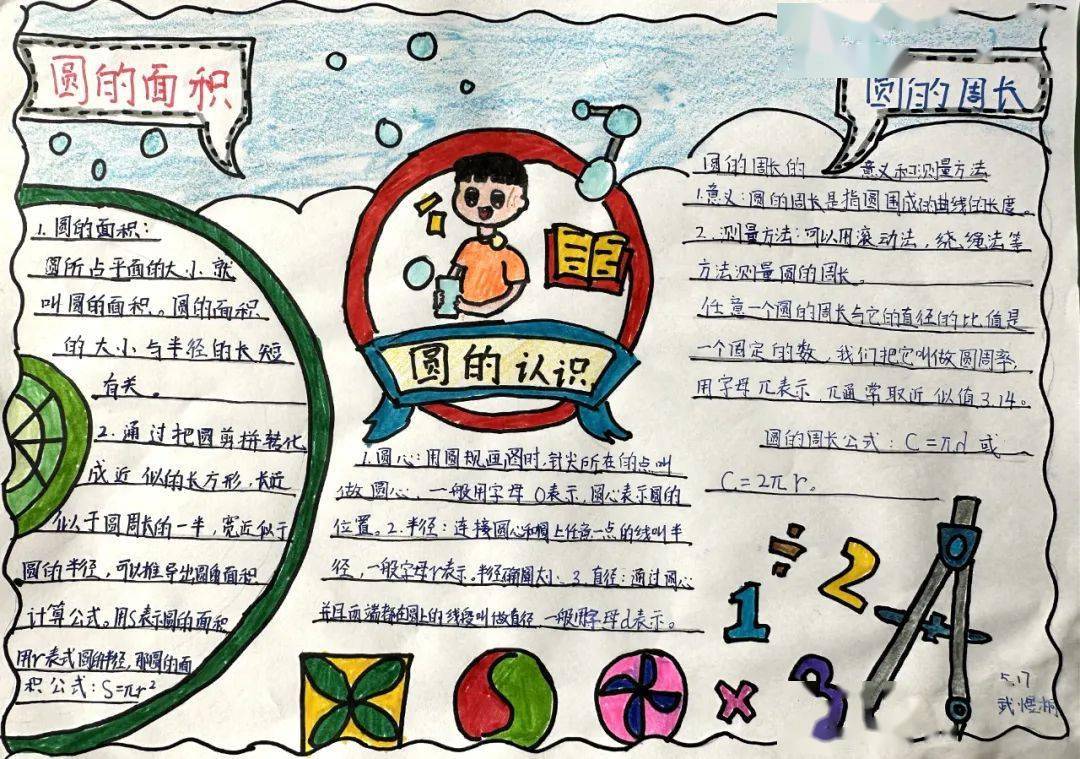 圆的面积
1.圆的面积：
圆所占平面的大小就
叫圆的面积。圆的面积
的大小与半径的长短
有关。
2.通过把圆剪拼转化
成近似的长方形，长近
似于圆周长的一半，宽近似于
圆的半径，可以推导出圆的面积
计算公式。用S表示圆的面积
用r表式圆的半径，那圆的面
积公式：S=πr²
圆的认识
1.圆心：用圆规画圆时，针尖所在的点叫
做圆心，一般用字母O表示，圆心表示圆的
位置。2.半径：连接圆心和圆上任意一点的线叫半
径，一般字母r表示。半径确圆大小、3.直径：通过圆心
并且两端都在圆上的线段叫做直径，一般用字母d表示。
圆的周长
圆的周长的 意义和测量方法
1.意义：圆的周长是指圆围成的曲线的长度。
2.测量方法：可以用滚动法，绕绳法等
方法测量圆的周长。
任意一个圆的周长与它的直径的比值是
一个固定的数，我们把它叫做圆周率，
用字母π表示，π通常取近似值3.14。
圆的周长公式：C=πd或
C=2πr。
1 ÷ 2
× 3
5.17
武煜桐